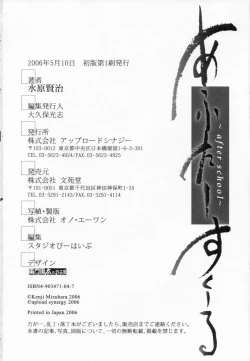 2006年5月10日　初版第1刷発行
著者
水原賢治
編集発行人
大久保光志
発行所
株式会社 アップロードシナジー
〒103-0012 東京都中央区日本橋堀留1-6-3-381
TEL 03-5623-4924/FAX 03-5623-4925
発売元
株式会社 文苑堂
〒101-0051 東京都千代田区神田神保町1-35
TEL 03-3291-2143/FAX 03-3291-4114
写植・製版
株式会社 オノ・エーワン
編集
スタジオびーはいぶ
デザイン
ISBN4-903471-04-7
©Kenji Mizuhara 2006
©upload synergy 2006
Printed in Japan 2006
万が一、乱丁・落丁本がございましたら、販売店までご連絡ください。
本書の記事、写真、図版について、一切の無断転載、掲載を禁じます。
あふたーすくーる
～after school～